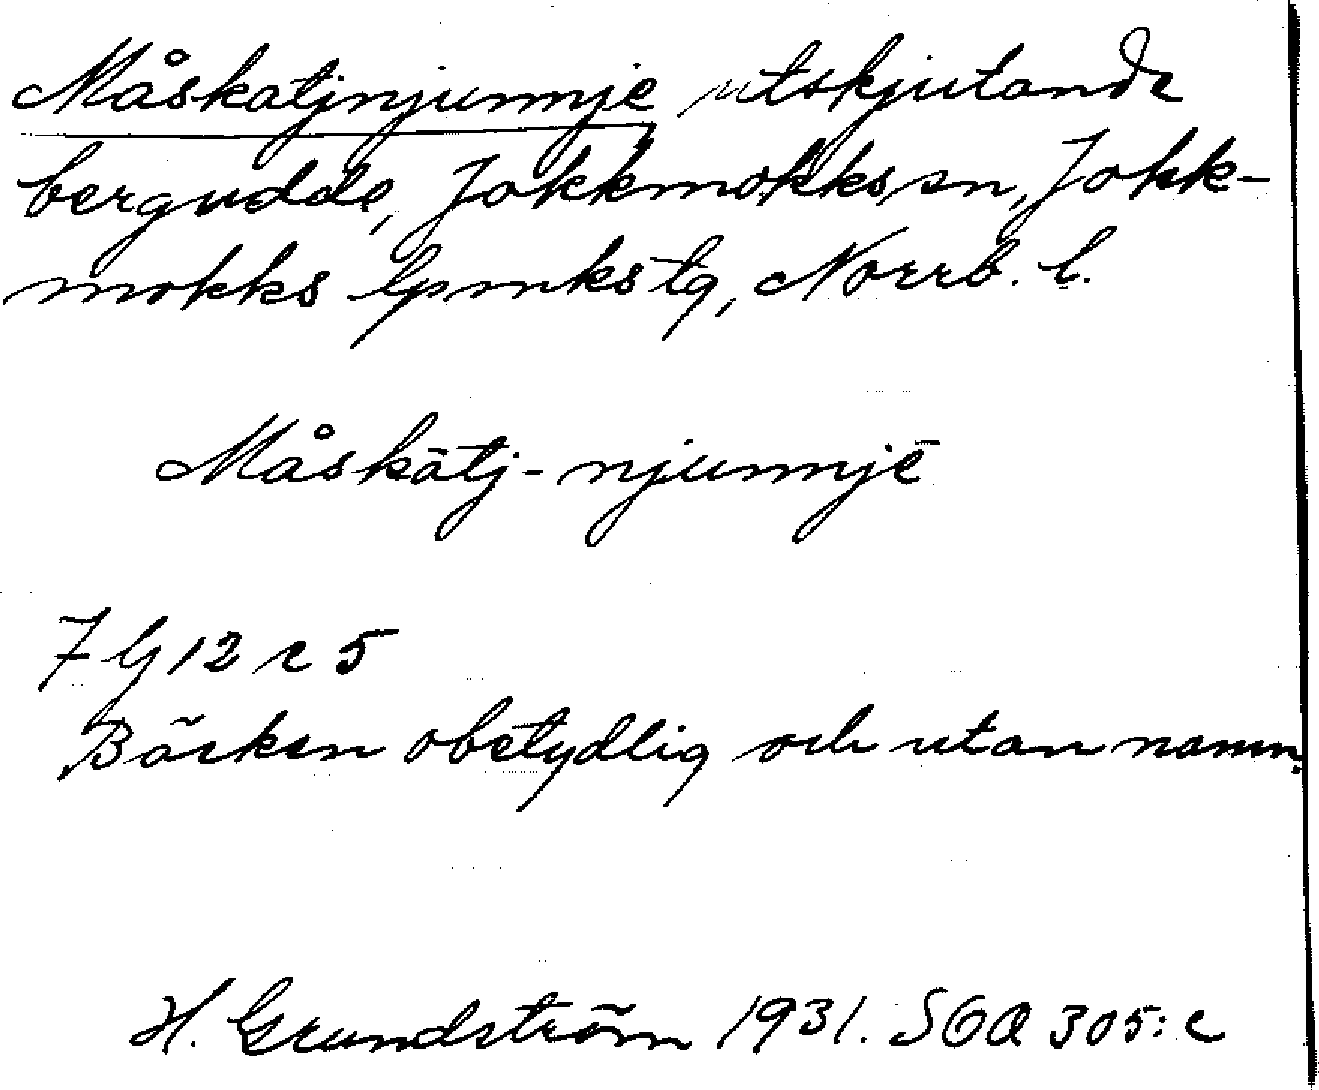 Måskatjnjunnje utskjutande
bergudde, Jokkmokks sn, Jokk-
mokks lpmkstg, Norrb. l.
Måskātj-njunnjē
7 G 12 c 5
Bäcken obetydlig och utan namn.
H. Grundström 1931. SOA 305:c